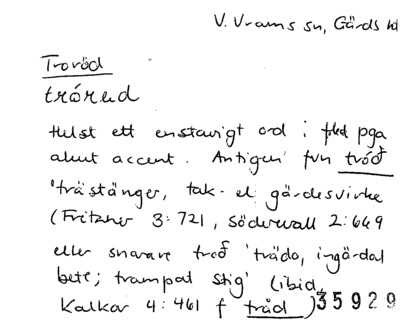 V. Vrams sn, Gärds hd
Troröd
tróred
Helst ett enstavigt ord i fled pga
akut accent. Antigen fvn tróð
'trästänger, tak- el gärdesvirke
(Fritzner 3:721, Söderwall 2:669
eller snarare troð 'träda, ingärdat
bete; trampat stig' (ibid,
Kalkar 4:461 f tråd)
35929